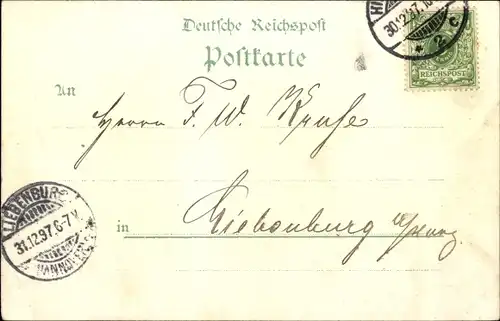 Deutsche Reichspost
Postkarte
30.12.97.
* 2 c
REICHSPOST
An
Herrn F. W. Kruse
in Liebenburg
LIEBENBURG
31.12.97. 6-7 V.
HANNOVER